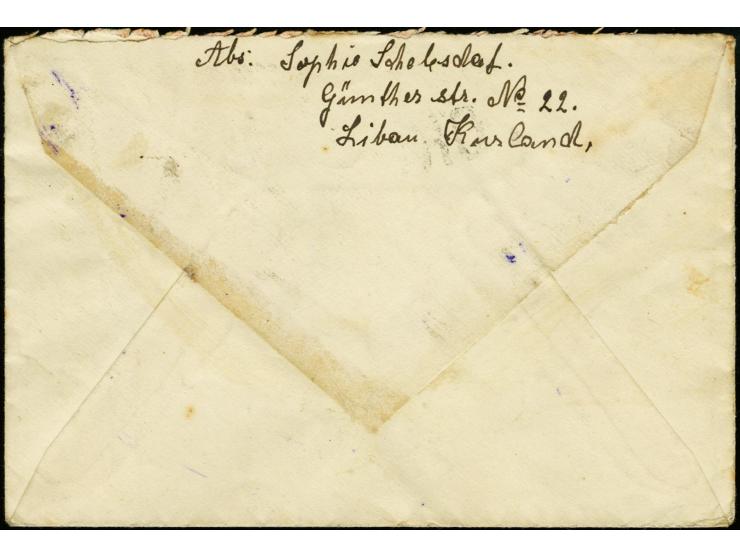 Abs: Sophie Schelesdaf.
Günther str. No 22.
Libau. Kurland,